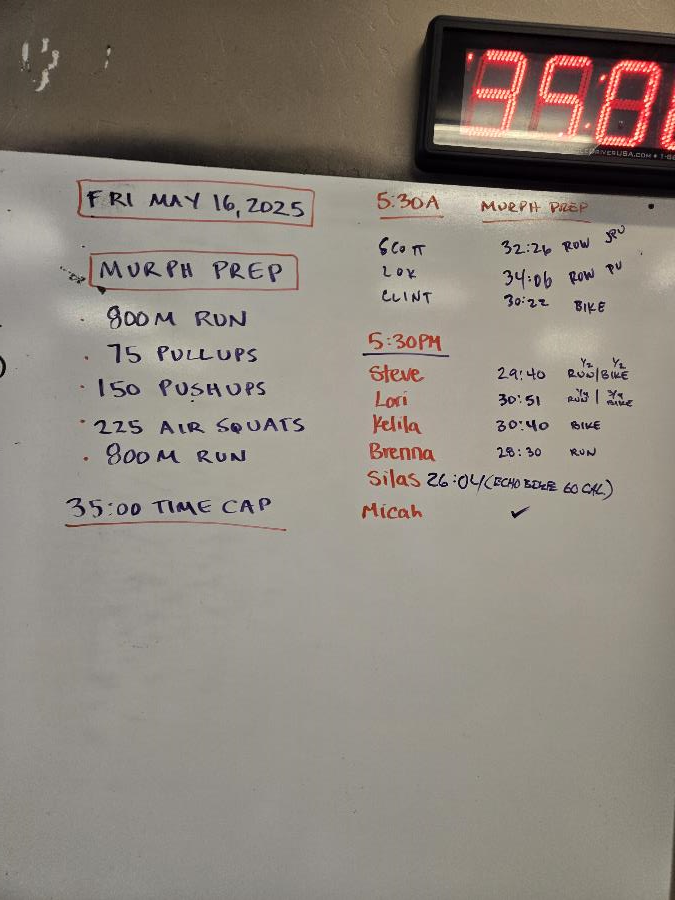 35:0
DRIVERUSA.COM • 1-8
FRI MAY 16, 2025
MURPH PREP
· 800M RUN
· 75 PULLUPS
· 150 PUSHUPS
· 225 AIR SQUATS
· 800M RUN
35:00 TIME CAP
5:30A MURPH PREP
SCOTT 32:26 ROW JPU
LOK 34:06 ROW PU
CLINT 30:22 BIKE
5:30PM
Steve 29:40 1/2 RUN | 1/2 BIKE
Lori 30:51 RUN | 3/4 BIKE
Kelila 30:40 BIKE
Brenna 28:30 RUN
Silas 26:04 (ECHO BIKE 60 CAL)
Micah ✓